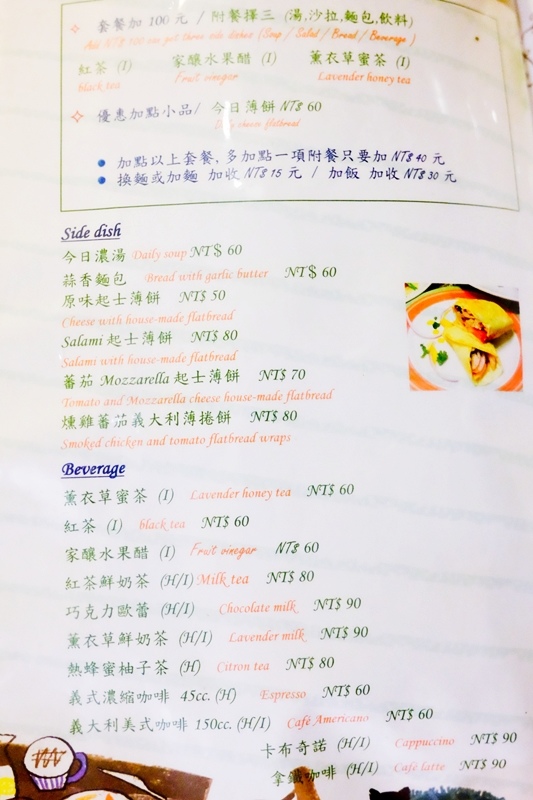 套餐加 100 元 / 附餐擇三 (湯,沙拉,麵包,飲料)
Add NT$ 100 can get three side dishes (Soup / Salad / Bread / Beverage )
紅茶 (I) 家釀水果醋 (I) 薰衣草蜜茶 (I)
black tea Fruit vinegar Lavender honey tea
優惠加點小品/ 今日薄餅 NT$ 60
Daily cheese flatbread
加點以上套餐, 多加點一項附餐只要加 NT$ 40 元
換麵或加麵 加收 NT$ 15 元 / 加飯 加收 NT$ 30 元
Side dish
今日濃湯 Daily soup NT$ 60
蒜香麵包 Bread with garlic butter NT$ 60
原味起士薄餅 NT$ 50
Cheese with house-made flatbread
Salami 起士薄餅 NT$ 80
Salami with house-made flatbread
蕃茄 Mozzarella 起士薄餅 NT$ 70
Tomato and Mozzarella cheese house-made flatbread
燻雞蕃茄義大利薄捲餅 NT$ 80
Smoked chicken and tomato flatbread wraps
Beverage
薰衣草蜜茶 (I) Lavender honey tea NT$ 60
紅茶 (I) black tea NT$ 60
家釀水果醋 (I) Fruit vinegar NT$ 60
紅茶鮮奶茶 (H/I) Milk tea NT$ 80
巧克力歐蕾 (H/I) Chocolate milk NT$ 90
薰衣草鮮奶茶 (H/I) Lavender milk NT$ 90
熱蜂蜜柚子茶 (H) Citron tea NT$ 80
義式濃縮咖啡 45cc. (H) Espresso NT$ 60
義大利美式咖啡 150cc. (H/I) Café Americano NT$ 60
卡布奇諾 (H/I) Cappuccino NT$ 90
拿鐵咖啡 (H/I) Café latte NT$ 90